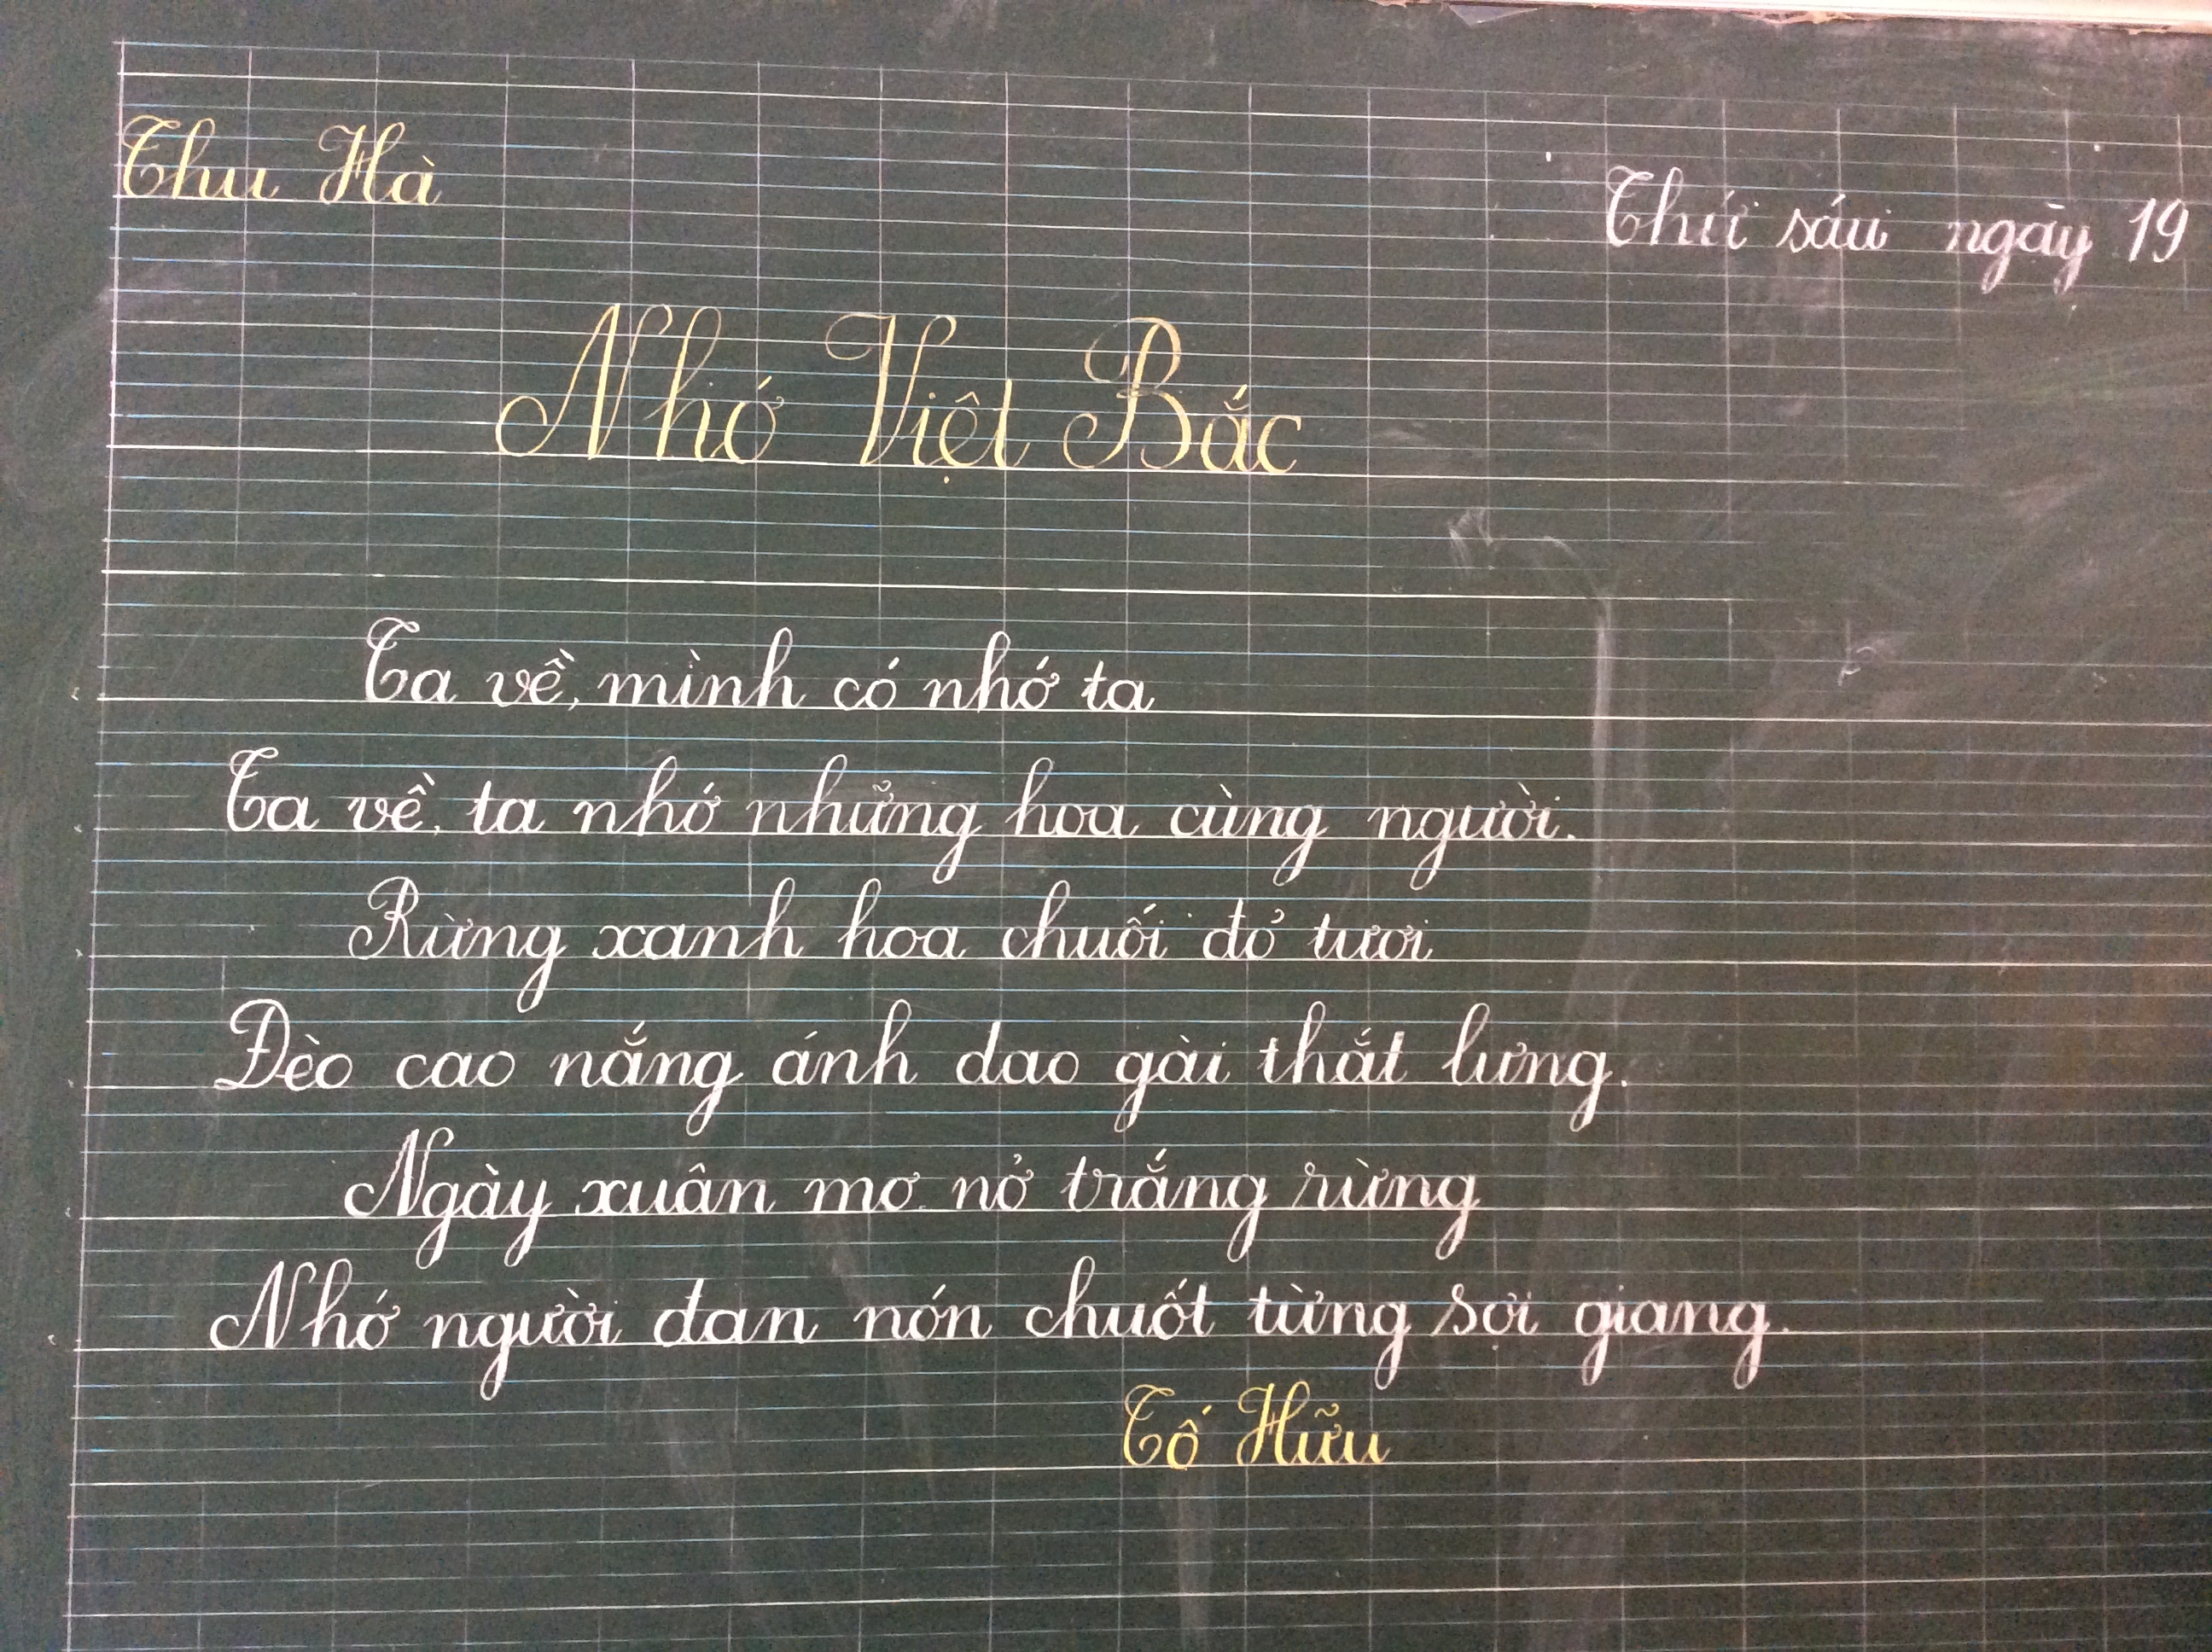 Thu Hà
Thứ sáu ngày 19
Nhớ Việt Bắc
Ta về, mình có nhớ ta
Ta về, ta nhớ những hoa cùng người.
Rừng xanh hoa chuối đỏ tươi
Đèo cao nắng ánh dao gài thắt lưng.
Ngày xuân mơ nở trắng rừng
Nhớ người đan nón chuốt từng sợi giang.
Tố Hữu